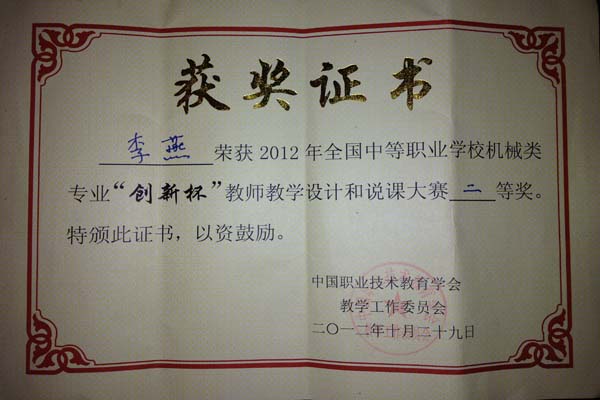 获奖证书
李燕 荣获 2012 年全国中等职业学校机械类
专业“创新杯”教师教学设计和说课大赛 二 等奖。
特颁此证书，以资鼓励。
中国职业技术教育学会
教学工作委员会
二〇一二年十月二十九日